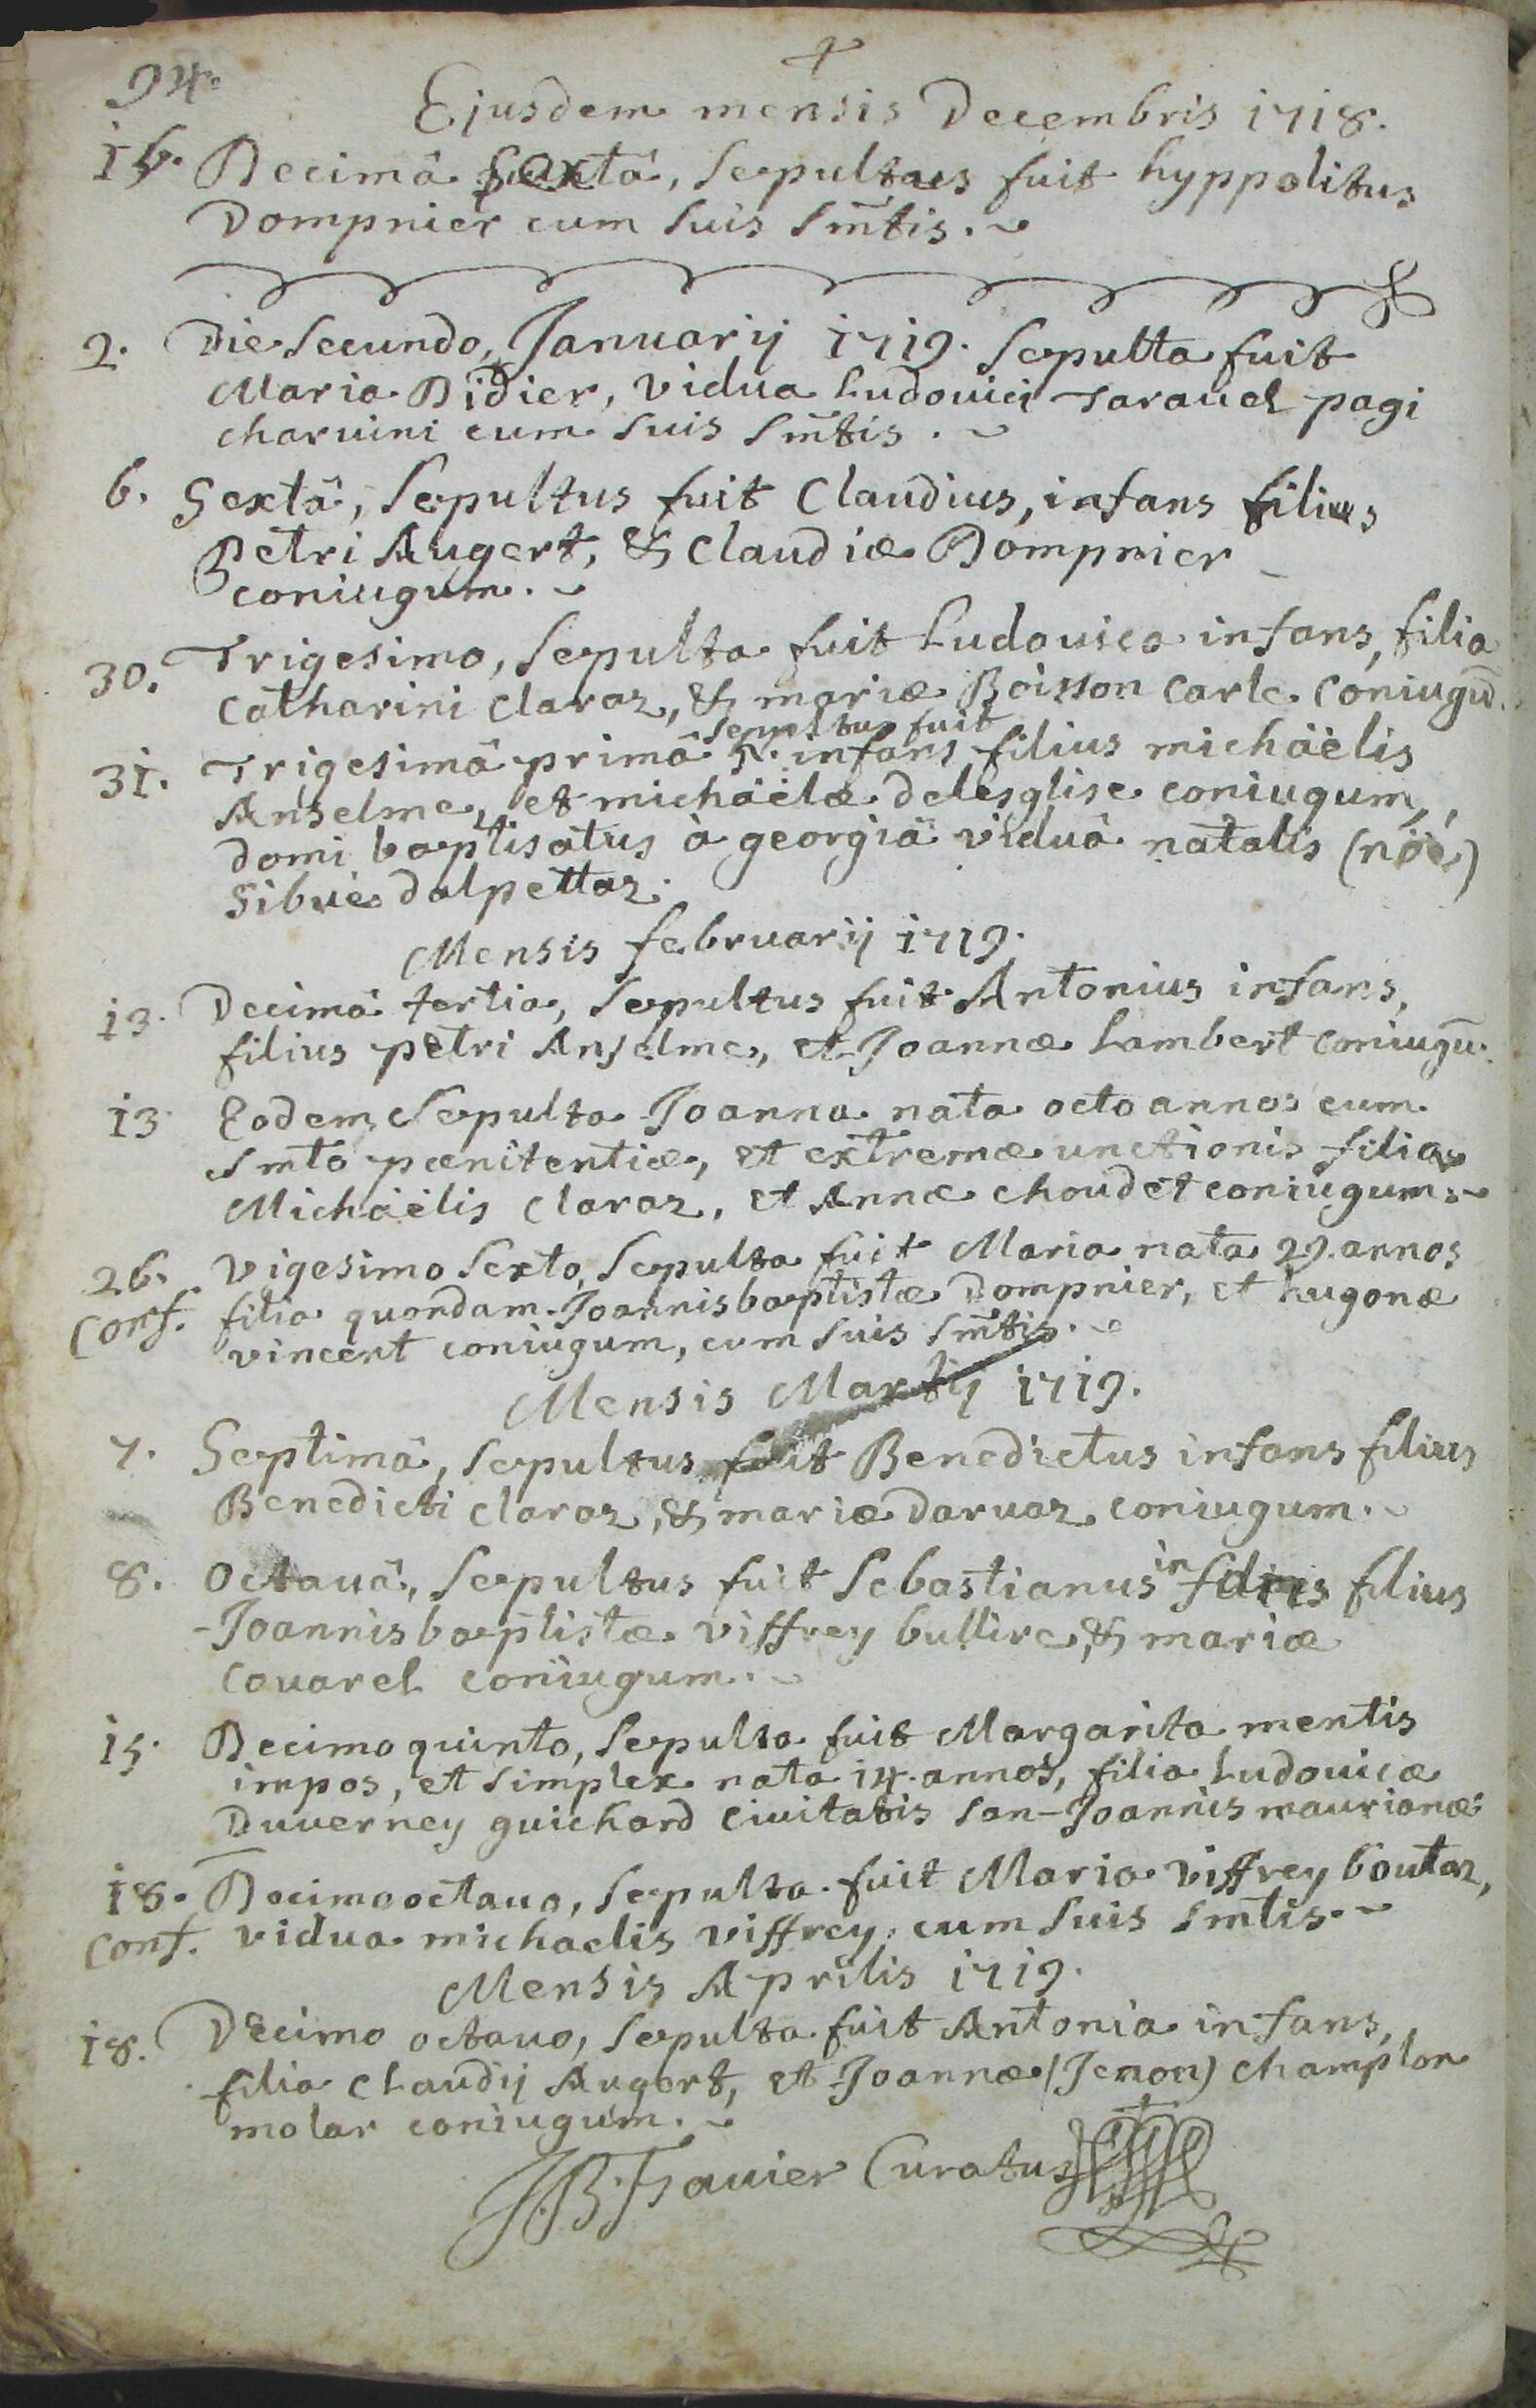 94.
Ejusdem mensis Decembris 1718.
16. Decimâ sextâ, Sepultus fuit hyppolitus
Dompnier cum suis Smtis.
2. Die secundo, Januarij 1719. Sepulta fuit
Maria Didier, vidua Ludouici Tarauel pagi
charuini cum suis Smtis.
6. Sextâ, Sepultus fuit Claudius, infans filius
Petri Augert, & Claudiæ Dompnier
coniugum.
30. Trigesimo, Sepulta fuit Ludouica infans, filia
Catharini Claraz, & mariæ Boisson Carle Coniugū.
sepultus fuit
31. Trigesimâ primâ N. infans filius michäelis
Anselme, et michäelæ delesglise coniugum,
domi baptisatus à georgiâ viduâ natalis (nöé)
Sibué dalpettaz.
Mensis februarij 1719.
13. Decimâ tertia, Sepultus fuit Antonius infans,
filius petri Anselme, et Joannæ Lambert coniugū.
13 Eodem Sepulta Joanna nata octo annos cum
Smto pœnitentiæ, et extremæ unctionis filia
Michäelis Claraz, et Annæ choudet coniugum.
26. Vigesimo Sexto, Sepulta fuit Maria nata 29. annos
Conf. filia quondam Joannisbaptistæ Dompnier, et hugonæ
vincent coniugum, cum suis Smtis.
Mensis Martij 1719.
7. Septimâ, Sepultus fuit Benedictus infans filius
Benedicti Claraz, & mariæ Daruaz coniugum.
in
8. Octauâ, Sepultus fuit Sebastianus fans filius
Joannisbaptistæ viffrey bullire, & mariæ
Couarel coniugum.
15. Decimo quinto, Sepulta fuit Margarita mentis
impos, et simplex nata 14. annos, filia Ludouicæ
Duverney guichard Ciuitatis San-Joannis maurianæ
18. Decimo octauo, Sepulta fuit Maria Viffrey boutaz,
Conf. vidua michaelis viffrey, cum suis Smtis.
Mensis Aprilis 1719.
18. Decimo octauo, Sepulta fuit Antonia infans,
filia Claudij Augert, et Joannæ (Jenon) Champlon
molar coniugum.
J.B. Fauier Curatus